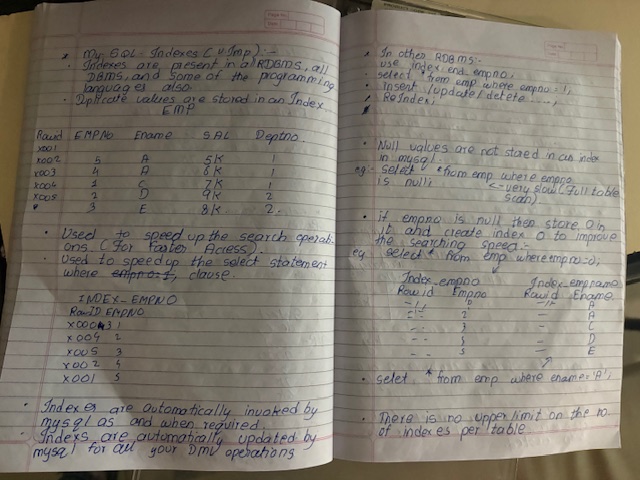 * MySQL - Indexes (V Imp) :-
• Indexes are present in a RDBMS, all
DBMS, and some of the programming
languages also
• Duplicate values are stored in an Index
EMP
RowId EMPNO Ename SAL Deptno
X001 5 A 5K 1
X002 4 A 6K 1
X003 1 C 7K 1
X004 2 D 9K 2
X005 3 E 8K 2
• Used to speed up the search operati-
ons (for faster Access)
• Used to speed up the select statement
where clause.
INDEX-EMPNO
RowID EMPNO
X003 1
X004 2
X005 3
X002 4
X001 5
• Indexes are automatically invoked by
mysql as and when required
• Indexes are automatically updated by
mysql for all your DML operations
* In other RDBMS:-
use index ind_empno;
• select * from emp where empno = 1;
• insert / update / delete
• Reindex;
• Null values are not stored in an index
in mysql
eg - select * from emp where empno
is null; <- very slow (Full table
scan)
• If empno is null then store 0 in
it, and create index 0 to improve
the searching speed -
eg select * from emp where empno=0;
Index-empno Index-empname
Rowid Empno Rowid Ename
- 1 - A
- 2 - A
- 3 - C
- D
- 5 - E
• select * from emp where ename='A';
• There is no upper limit on the no.
of indexes per table